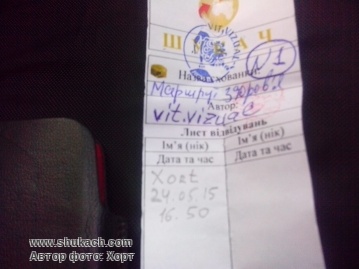 VIT.VIZUAL
Ш У К А Ч
№1
Назва сховання:
Маршрут здоров'я
Автор:
vit.vizual
Лист відвідувань
Ім'я (нік) Ім'я (нік)
Дата та час Дата та час
Хорт
24.05.15
16.50
www.shukach.com
Автор фото: Хорт